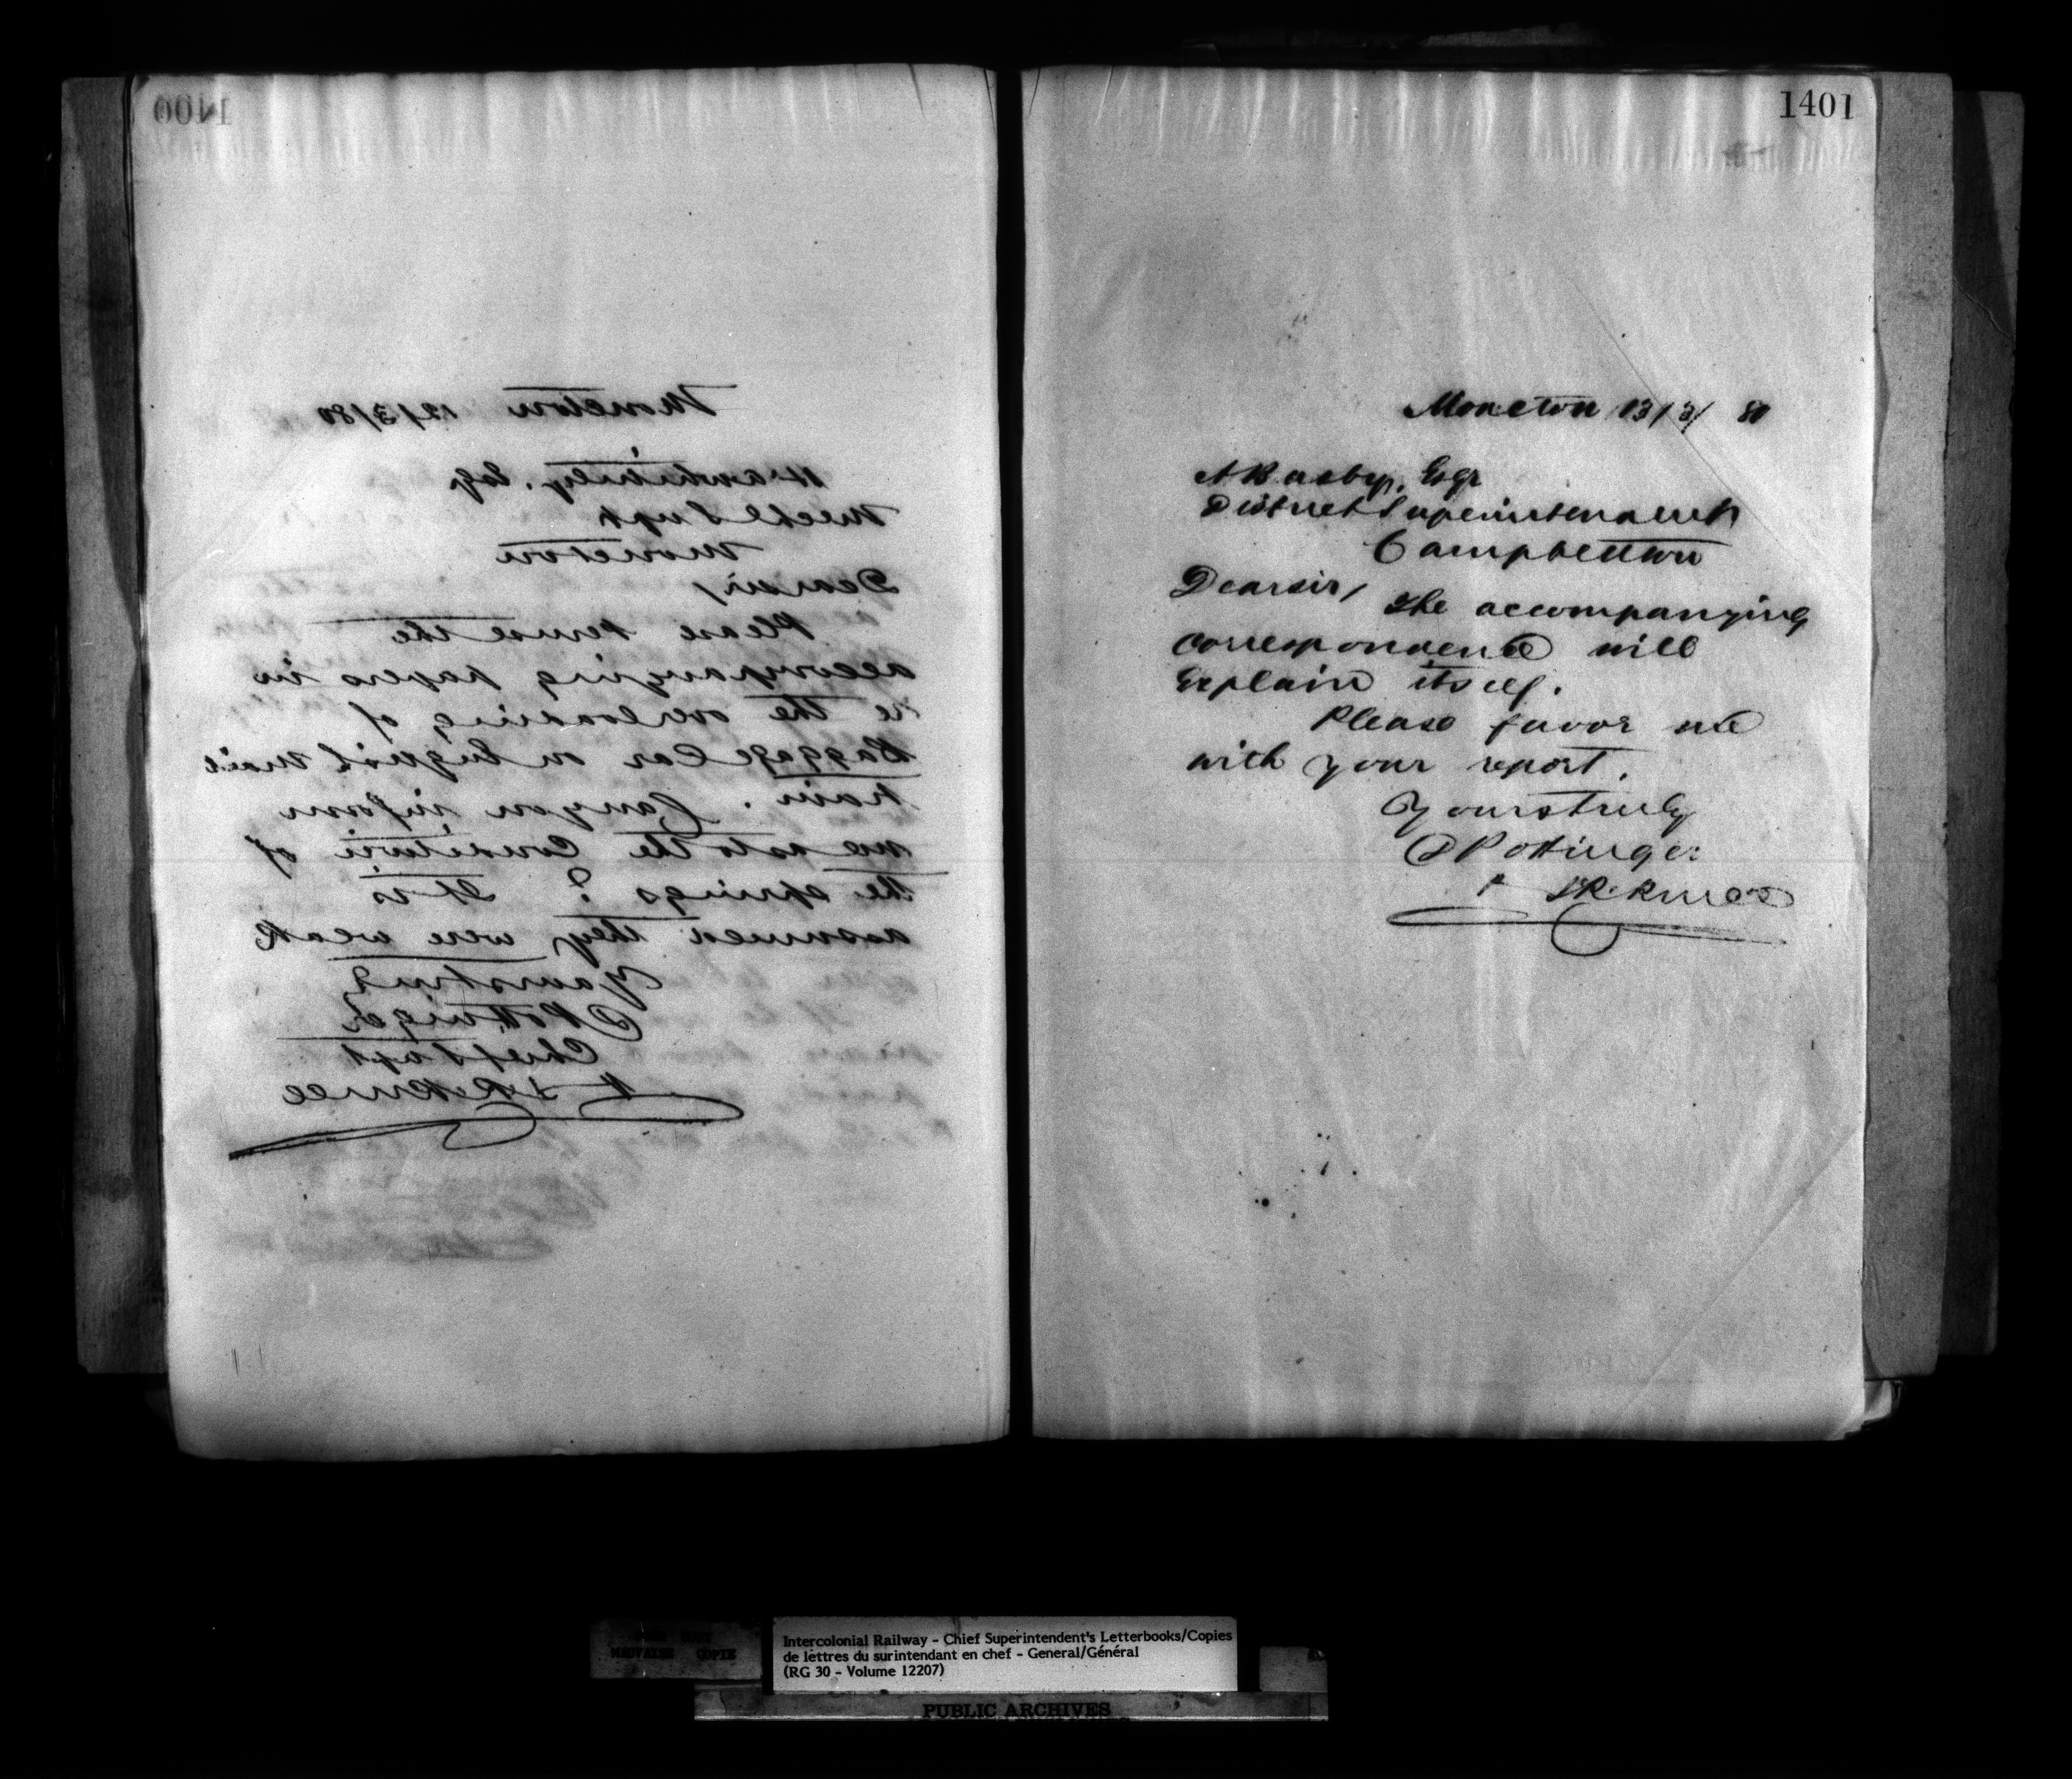 1400
Moncton 12/3/80
H A Whitney. Esq
Mechl Supt
Moncton
Dear sir/
Please peruse the
accompanying papers in
re the overloading of
Baggage Car on English mail
train. Can you inform
me as to the Condition of
the springs? It is
assumed they were weak
Yours truly
D Pottinger
Chief Supt
1401
Moncton 13/3/80
A Busby, Esqr
District Superintendent
Campbellton
Dear sir/
The accompanying
correspondence will
Explain itself.
Please favor me
with your report.
Yours truly
D Pottinger
MAUVAISE COPIE
Intercolonial Railway - Chief Superintendent's Letterbooks/Copies
de lettres du surintendant en chef - General/Général
(RG 30 - Volume 12207)
PUBLIC ARCHIVES